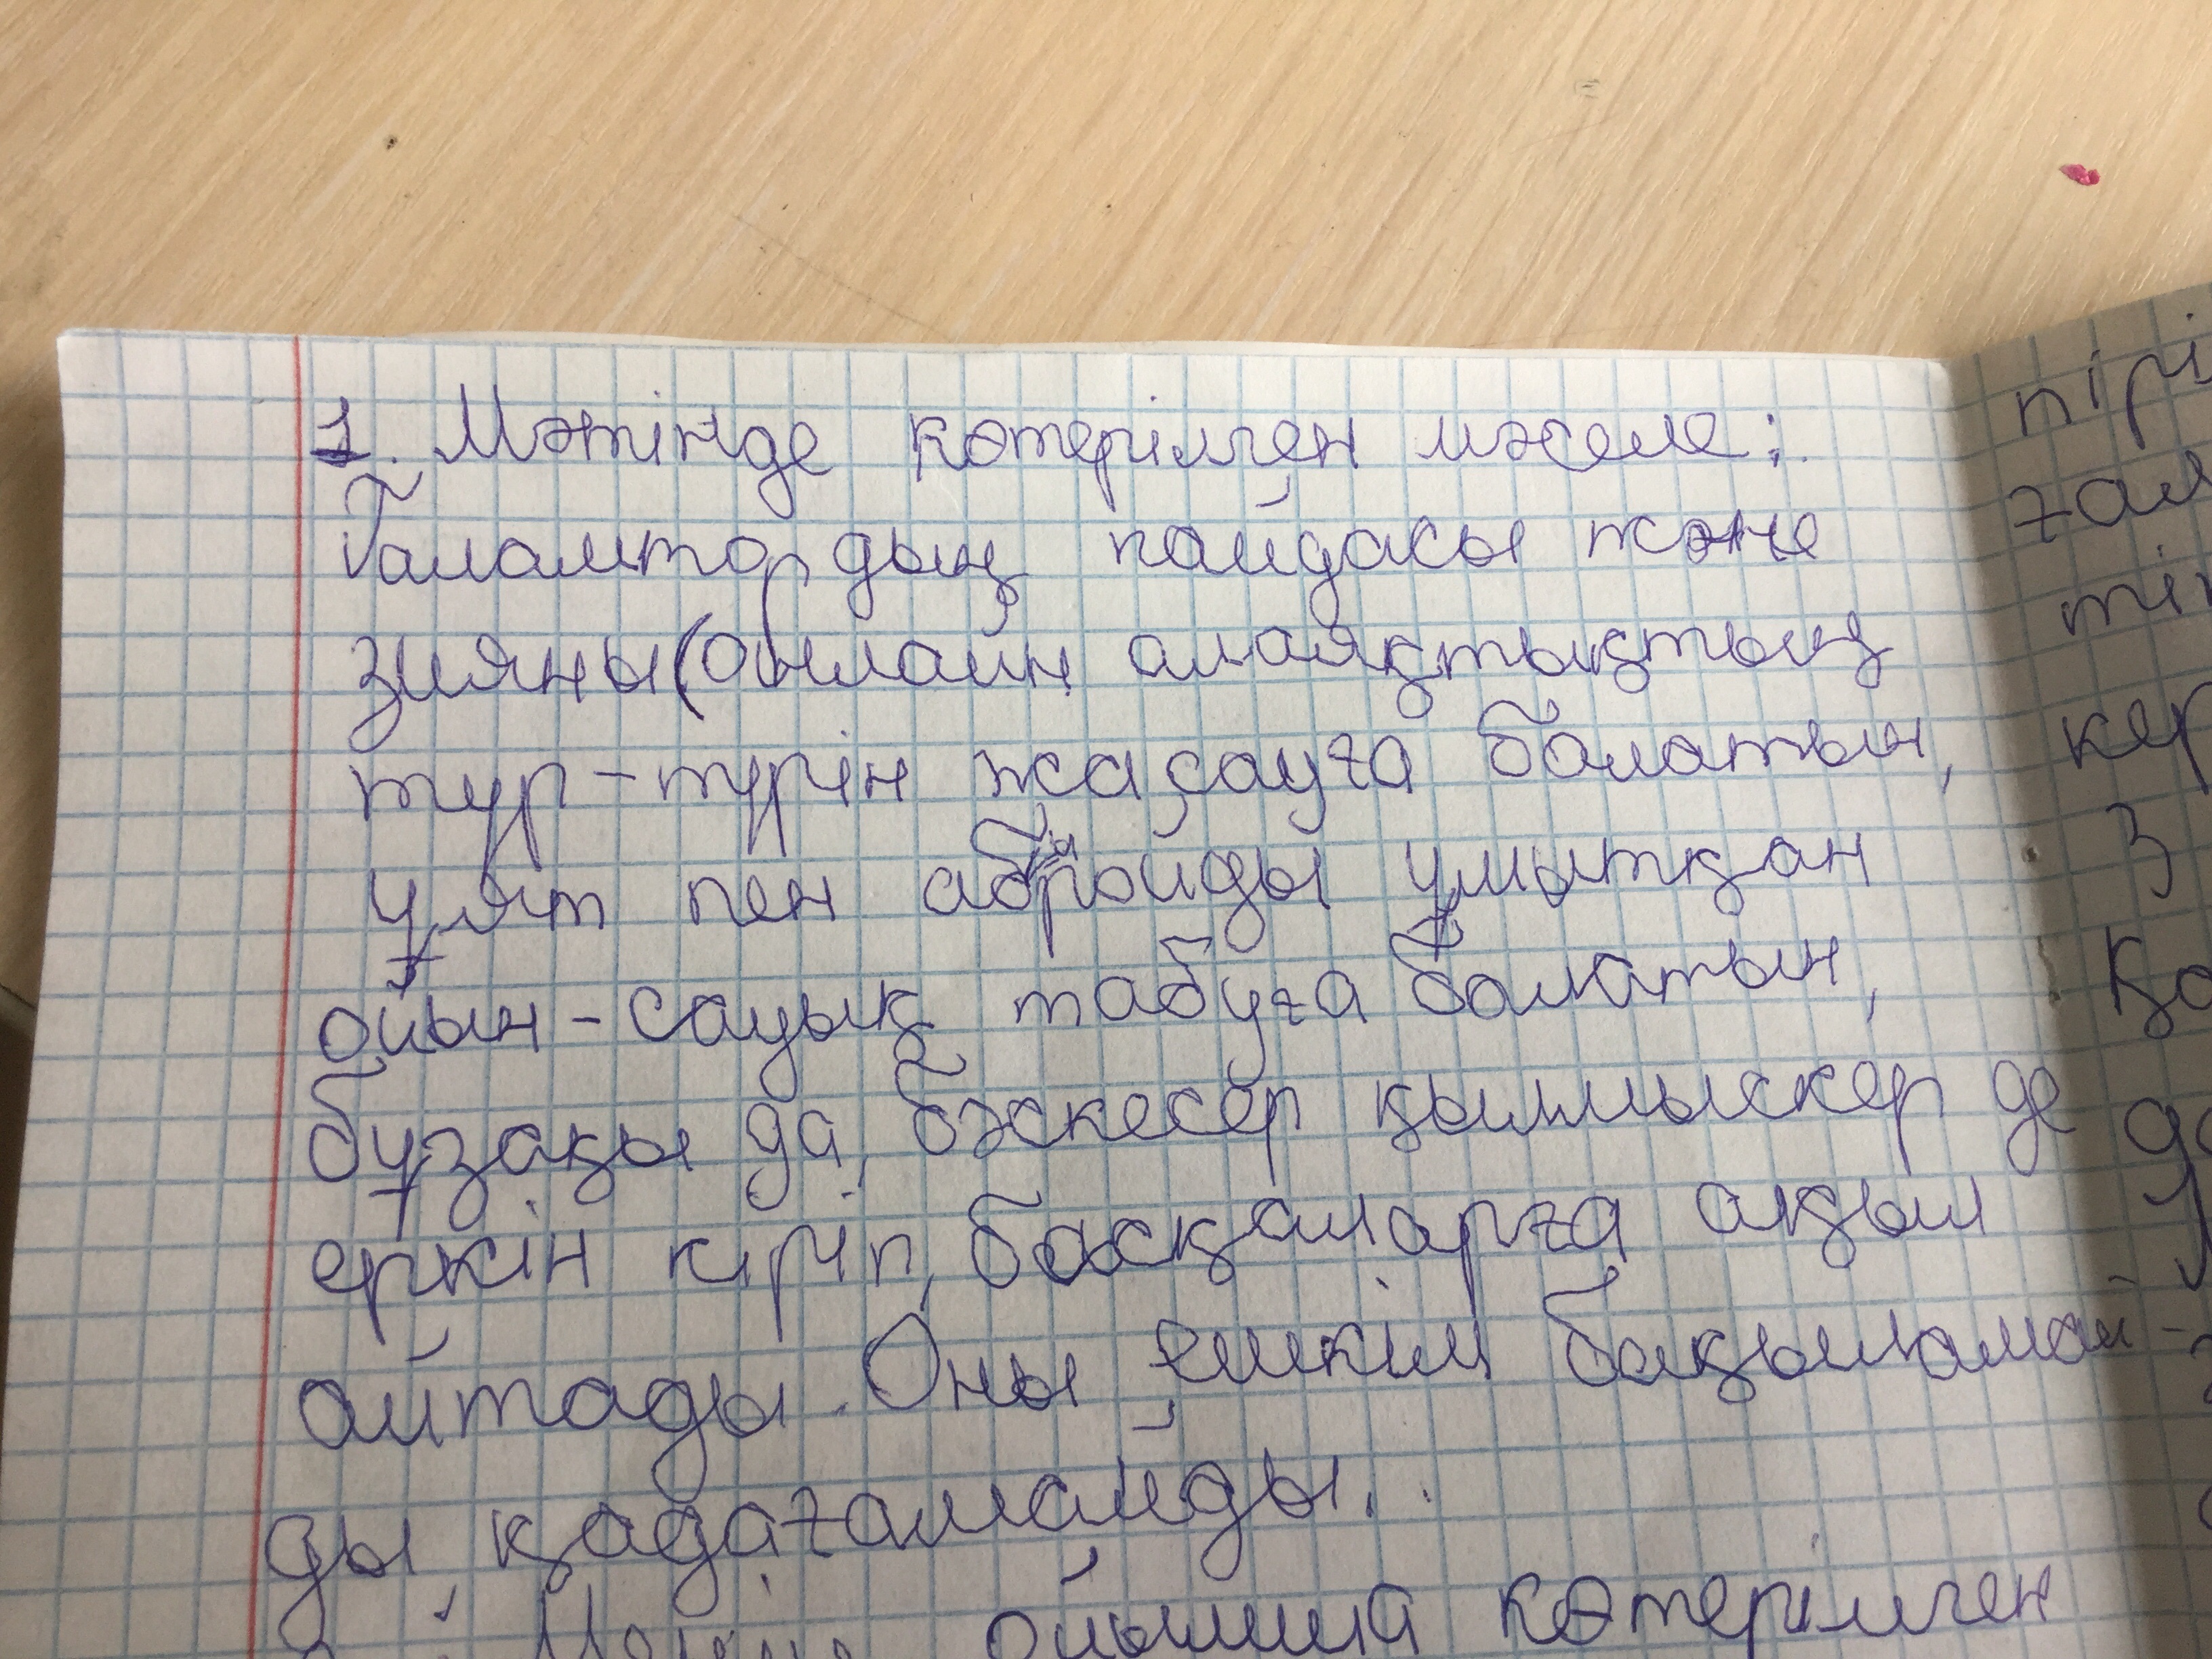 1. Мәтінде көтерілген мәселе:
Ғаламтордың пайдасы және
зияны (онлайн алаяқтықтың
түр-түрін жасауға болатын,
ұят пен абыройды ұмытқан
ойын-сауық табуға болатын,
бұзақы да, бәскесер қылмыскер де
еркін кіріп, басқаларға ақыл
айтады. Оны ешкім бақыламай-
ды, қадағаламайды.
ойымша көтерілген
кер
3